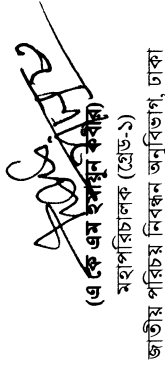 (এ কে এম হুমায়ুন কবীর)
মহাপরিচালক (গ্রেড-১)
জাতীয় পরিচয় নিবন্ধন অনুবিভাগ, ঢাকা